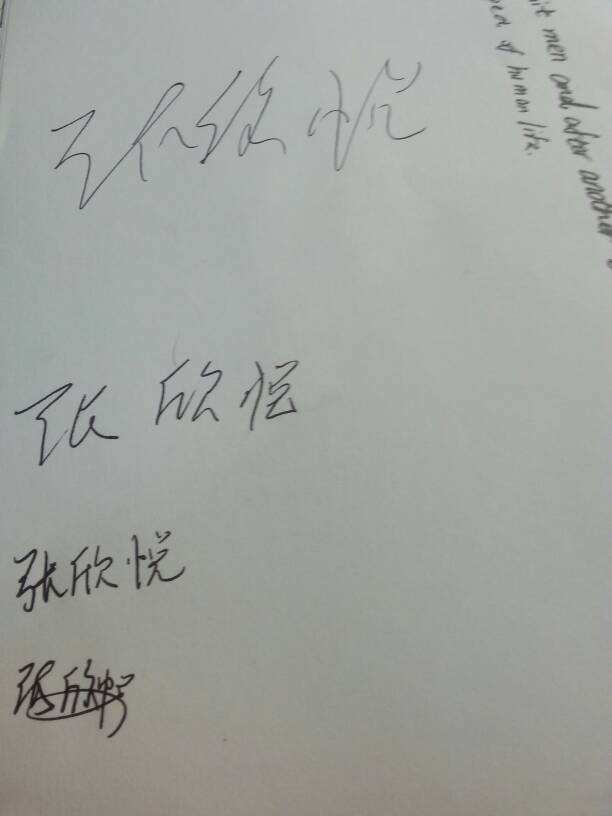 it men and after another
of human life.
张欣悦
张欣悦
张欣悦
张欣